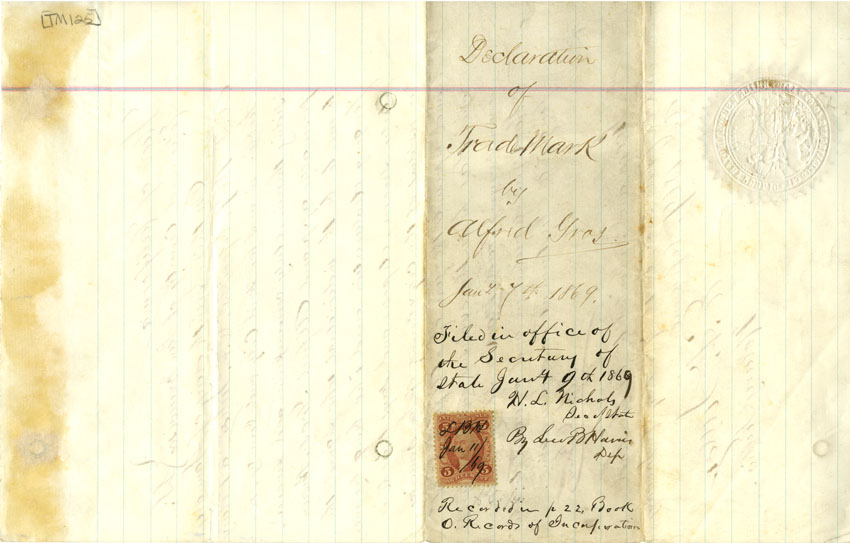 [TM125]
Declaration
of
Trade Mark
by
Alfred Gros.
Jany 7th 1869.
Filed in office of
the Secretary of
State Jany 9th 1869
H. L. Nichols
Sec of State
By Lew B Harris
Dep
Jan 11
/69
5 5
Recorded in p 22, Book
O. Records of Incorporation